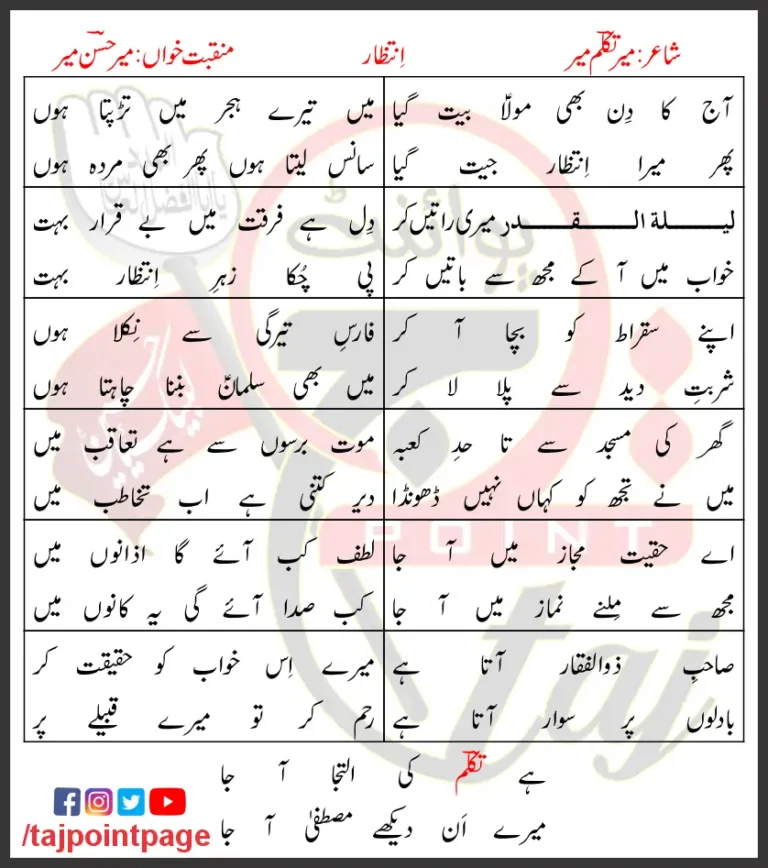 شاعر: میر تکلمؔ میر
اِنتظار
منقبت خواں: میر حسن میر
آج کا دِن بھی مولاؑ بیت گیا
پھر میرا اِنتظار جیت گیا
میں تیرے ہجر میں تڑپتا ہوں
سانس لیتا ہوں پھر بھی مردہ ہوں
لیلة القدر میری راتیں کر
خواب میں آ کے مجھ سے باتیں کر
دِل ہے فرقت میں بے قرار بہت
پی چُکا زہرِ اِنتظار بہت
اپنے سقراط کو بچا آ کر
شربتِ دید سے پلا لا کر
فارسِ تیرگی سے نِکلا ہوں
میں بھی سلمانؑ بننا چاہتا ہوں
گھر کی مسجد سے تا حدِ کعبہ
میں نے تجھ کو کہاں نہیں ڈھونڈا
موت برسوں سے ہے تعاقب میں
دیر کتنی ہے اب تخاطب میں
اے حقیت مجاز میں آ جا
مجھ سے مِلنے نماز میں آ جا
لطف کب آئے گا اذانوں میں
کب صدا آئے گی یہ کانوں میں
صاحبِ ذوالفقار آتا ہے
بادلوں پر سوار آتا ہے
میرے اِس خواب کو حقیقت کر
رحم کر تو میرے قبیلے پر
ہے تکلمؔ کی التجا آ جا
میرے اَن دیکھے مصطفیٰؐ آ جا
/tajpointpage
پوائنٹ
POINT
taj
لبیک یا حسین